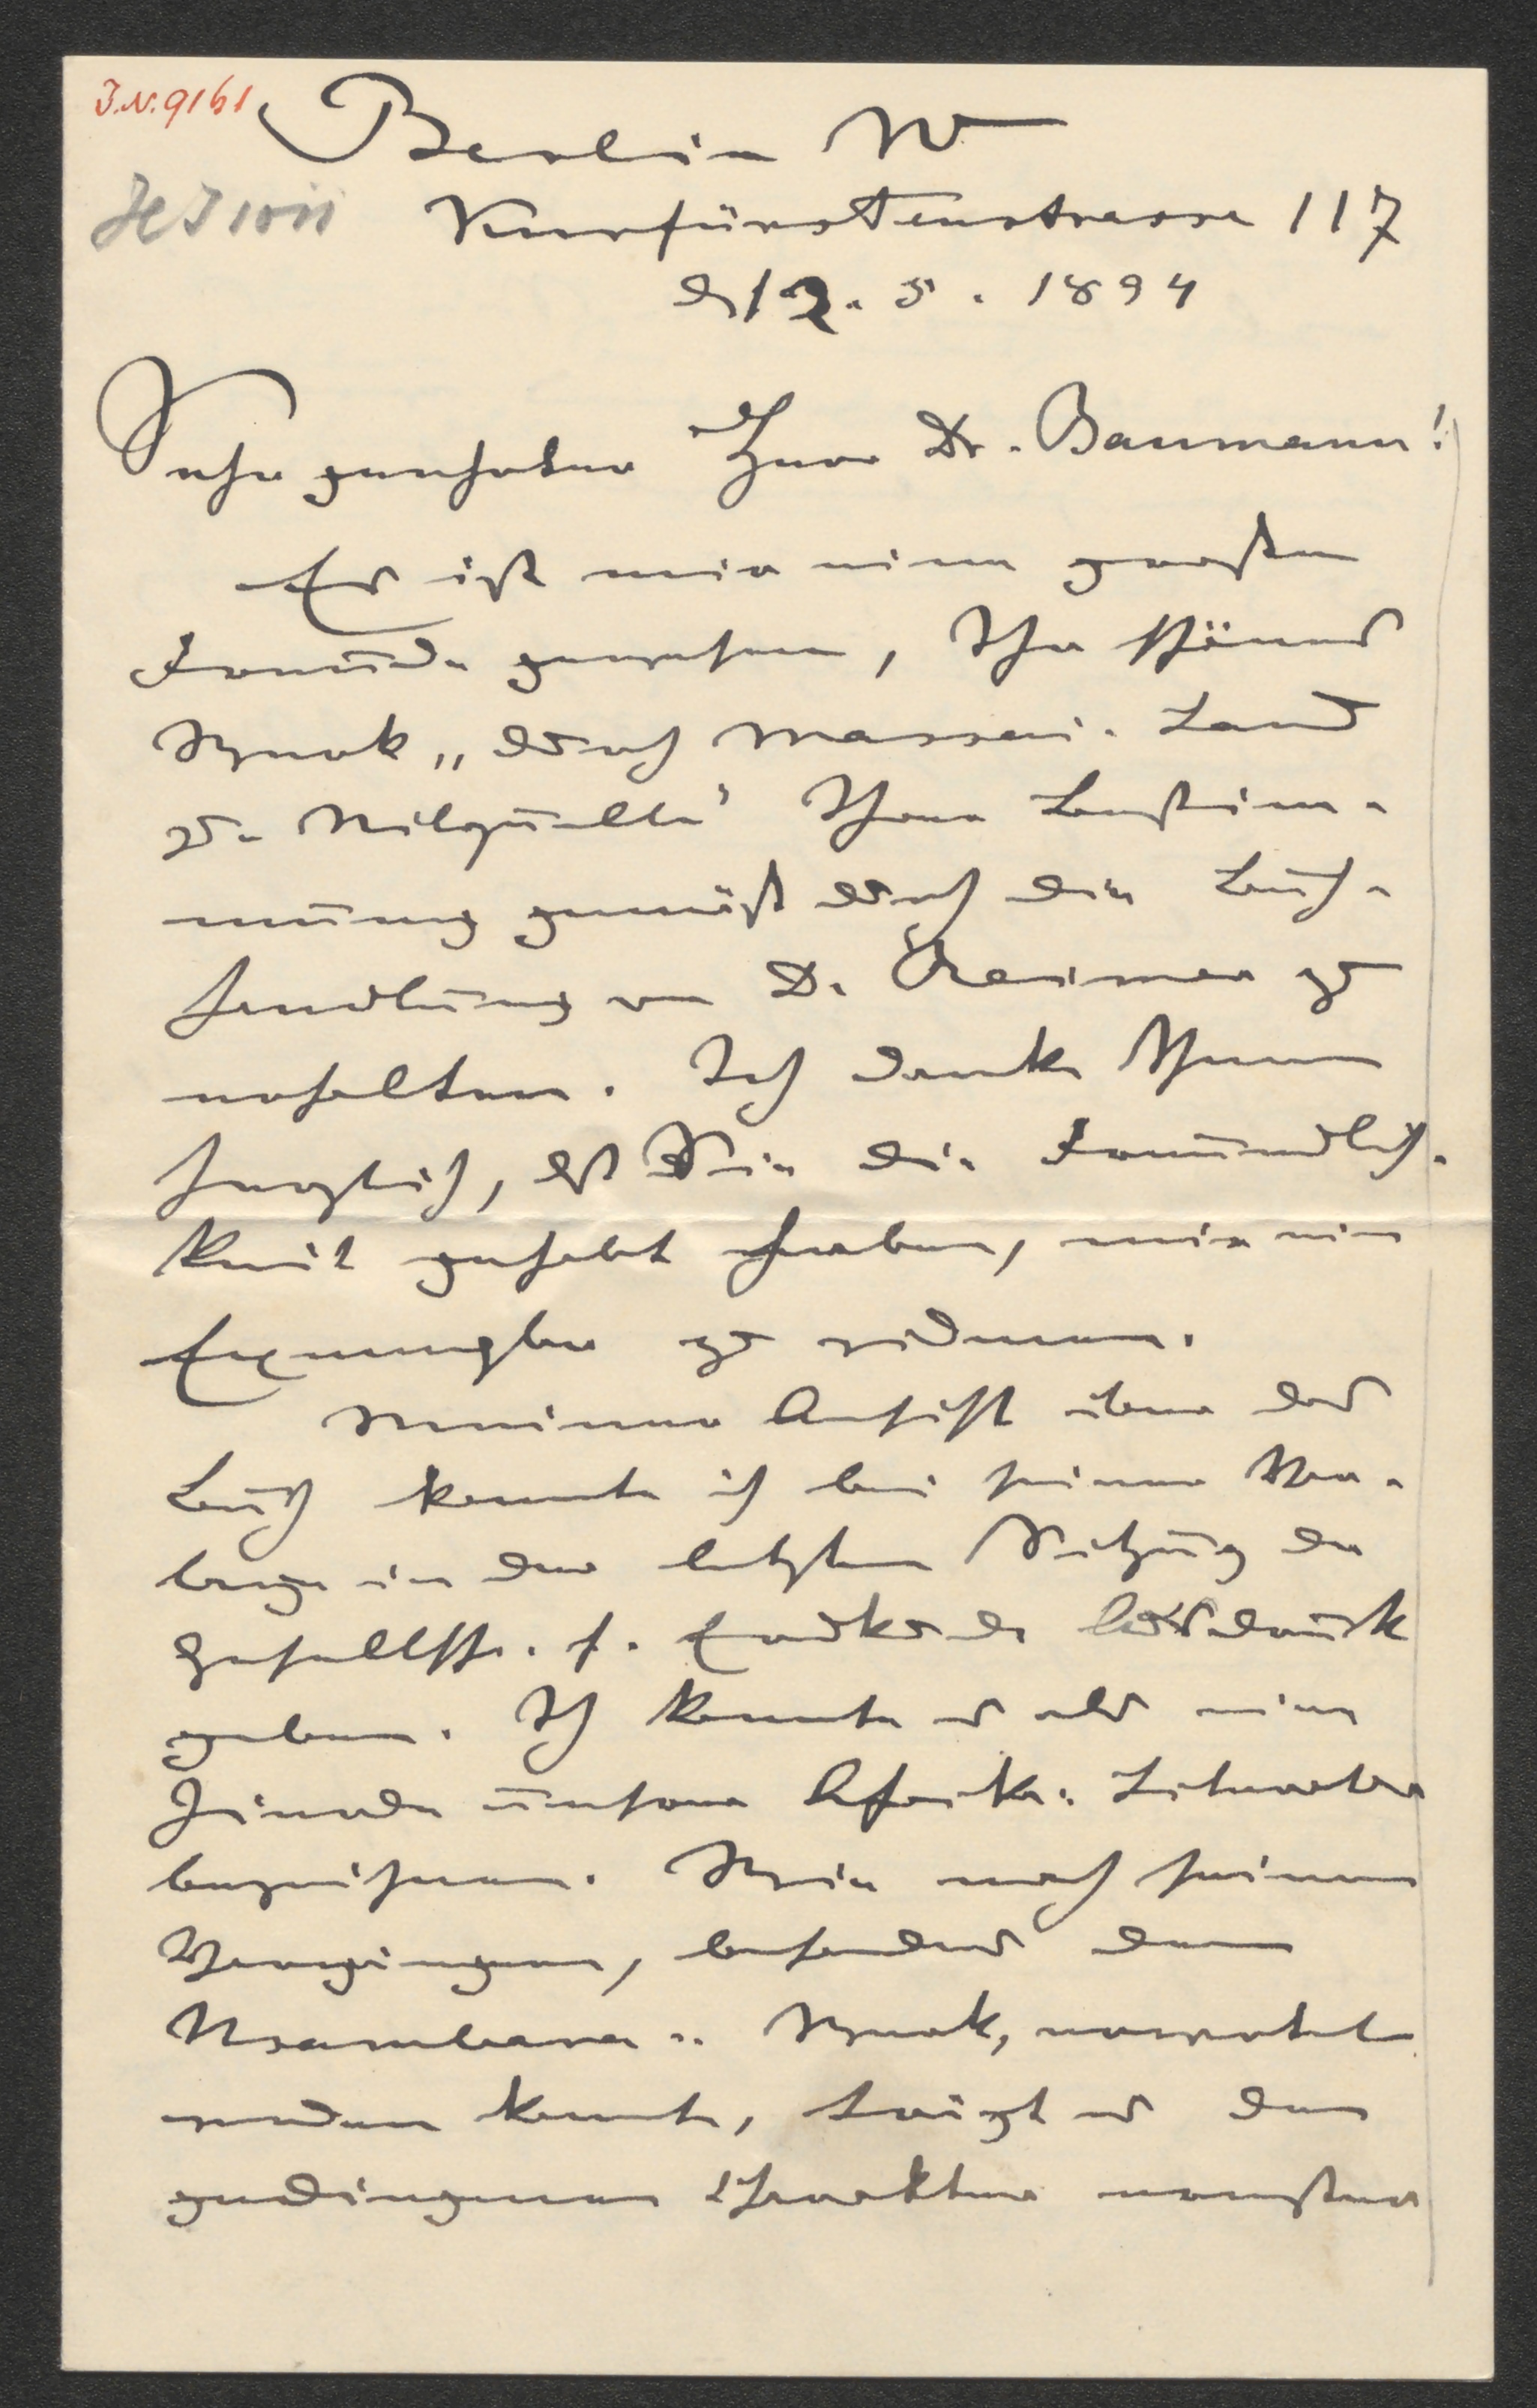 J.N. 9161
Berlin W
Kurfürstenstrasse 117
d 12. 5. 1894
Sehr geehrter Herr Dr. Baumann!
Es ist mir eine große
Freude gewesen, Ihr schönes
Werk „durch Massai-Land
zur Nilquelle" Ihrer Bestim-
mung gemäß durch die Buch-
handlung von D. Reimer zu
erhalten. Ich danke Ihnen
herzlich, daß Sie die Freundlich-
keit gehabt haben, mir ein
Exemplar zu widmen.
Meiner Ansicht über das
Buch konnte ich bei seiner Vor-
lage in der letzten Sitzung der
Gesellsch. f. Erdkunde Ausdruck
geben. Ich konnte es als eine
Zierde unserer Afrika-Literatur
bezeichnen. Wie nach seinen
Vorgängern, besonders dem
Usambara-Werk, erwartet
werden konnte, trägt es den
gediegenen Charakter ernster